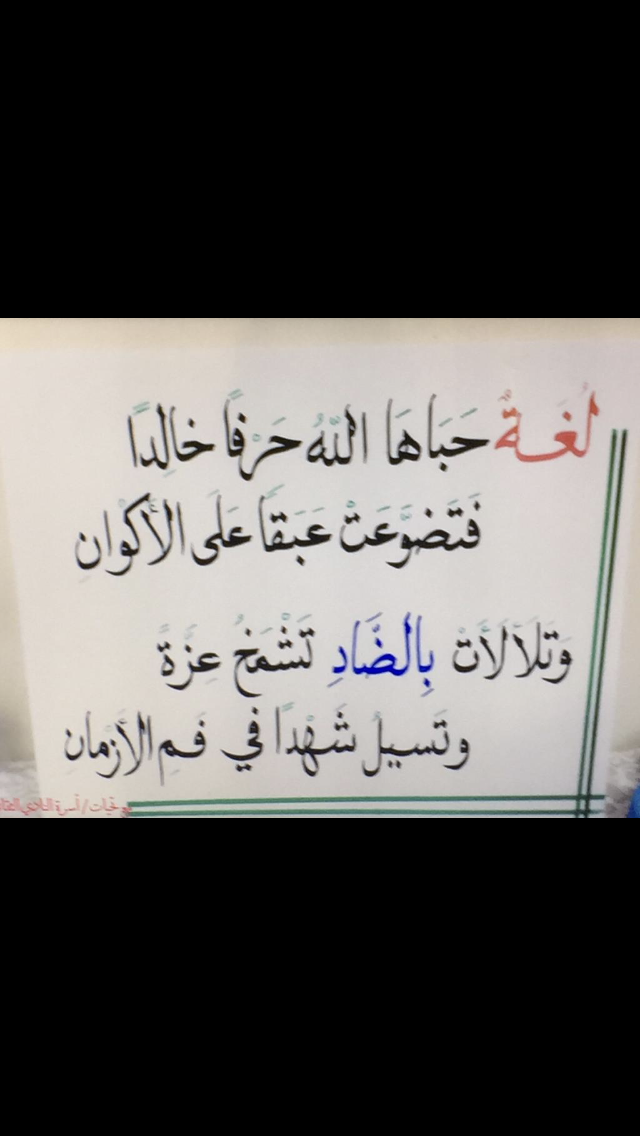 لُغَةٌ حَبَاهَا اللّٰهُ حَرْفًا خالِدًا
فَتَضَوَّعَتْ عَبَقًا عَلَى الأَكْوَانِ
وَتَلَألَأَتْ بِالضَّادِ تَشْمَخُ عِزَّةً
وتَسيلُ شَهْدًا في فَمِ الأَزمانِ
أسرة النادي